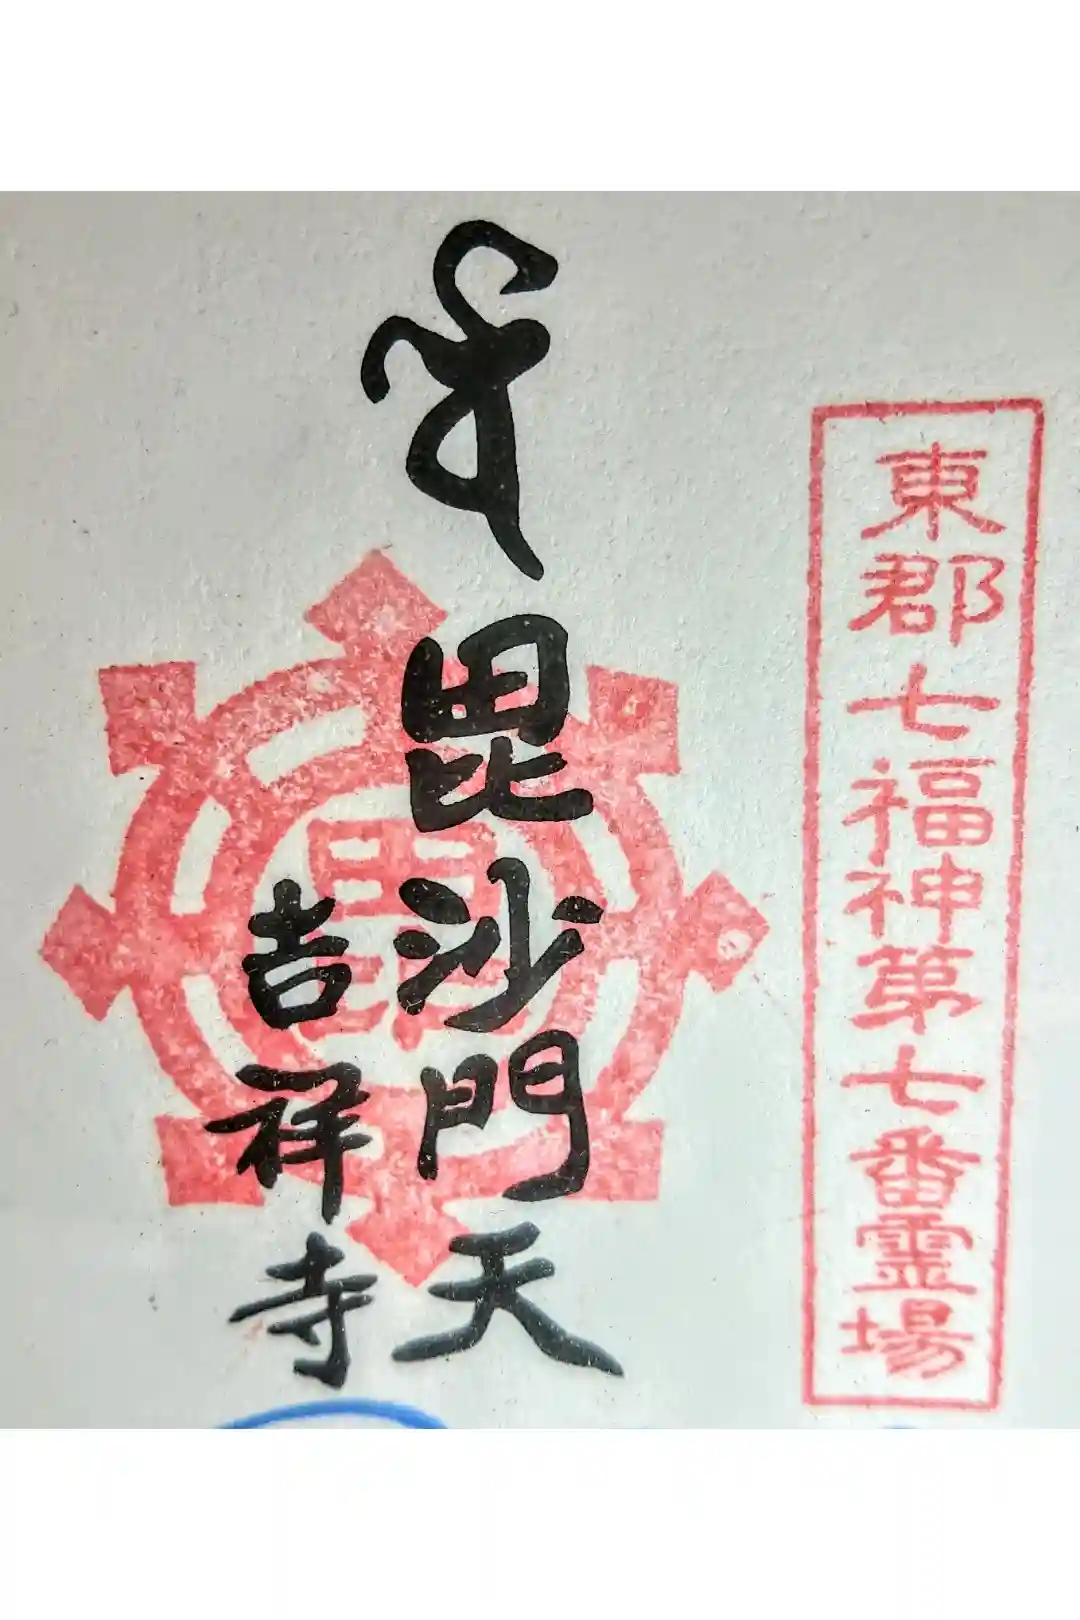 東郡七福神第七番霊場
毘沙門天
吉祥寺
毘